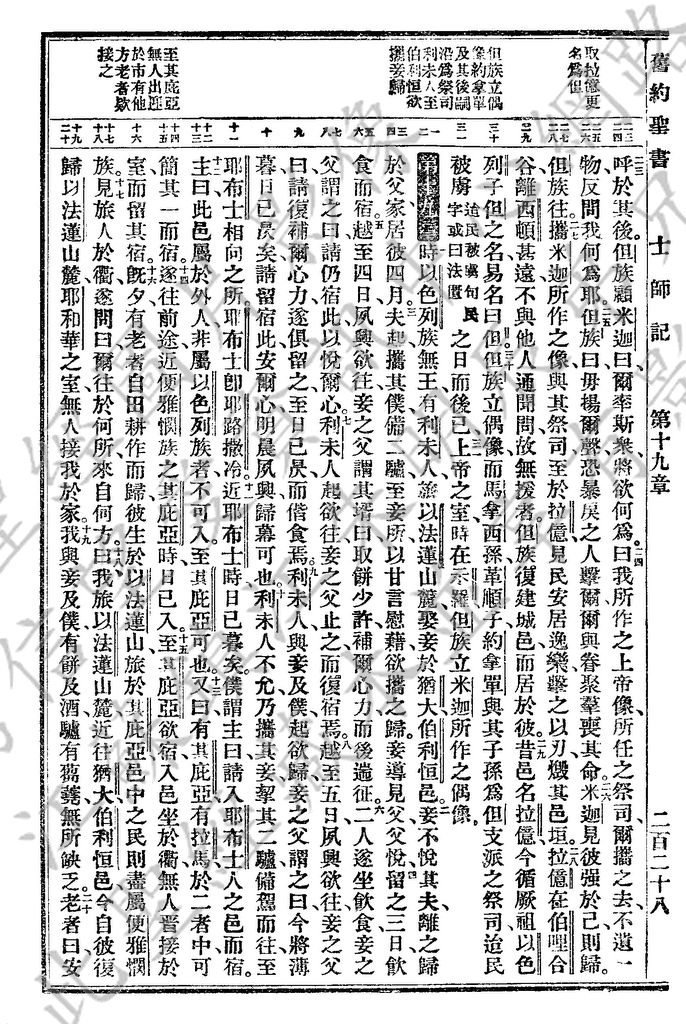 舊約聖書 士師記 第十九章 二百二十八
取拉億更名爲但
但族立偶像約拿單及其後嗣沿爲祭司
利未人至伯利恒欲攜妾歸
至其庇亞無人出迓於市有他方老者欵接之
呼於其後、但族顧米迦曰、爾率斯衆、將欲何爲、曰、我所作之上帝像、所任之祭司、爾攜之去、不遺一
物、反問我何爲耶、但族曰、毋揚爾聲、恐暴戾之人擊爾、爾與眷聚羣喪其命、米迦見彼強於己、則歸、
但族往、攜米迦所作之像、與其祭司、至於拉億、見民安居逸樂、擊之以刃、燬其邑垣、拉億在伯哩合
谷、離西頓甚遠、不與他人通聞問、故無援者、但族復建城邑而居於彼、昔邑名拉億、今循厥祖以色
列子但之名、易名曰但、但族立偶像、而馬拿西孫革順子約拿單、與其子孫、爲但支派之祭司、迨民
被虜迨民被虜句民字或曰法匱之日而後已、上帝之室時在示羅、但族立米迦所作之偶像。
第十九章時以色列族無王、有利未人、旅以法蓮山麓、娶妾於猶大伯利恒邑、妾不悅其夫、離之歸
於父家、居彼四月、夫起攜其僕、備二驢、至妾所、以甘言慰藉、欲攜之歸、妾導見父、父悅、留之三日、飲
食而宿、越至四日、夙興欲往、妾之父謂其壻曰、取餅少許、補爾心力、而後遄征、二人遂坐飲食、妾之
父謂之曰、請仍宿此、以悅爾心、利未人起欲往、妾之父止之、而復宿焉、越至五日、夙興欲往、妾之父
曰、請復補爾心力、遂俱留之、至日已昃而偕食焉、利未人與妾及僕起、欲歸、妾之父謂之曰、今將薄
暮、日已昃矣、請留宿此、安爾心、明晨夙興、歸幕可也、利未人不允、乃攜其妾、挈其二驢、備駕而往、至
耶布士相向之所、耶布士卽耶路撒冷、近耶布士時、日已暮矣、僕謂主曰、請入耶布士人之邑而宿、
主曰、此邑屬於外人、非屬以色列族者、不可入、至其庇亞可也、又曰、有其庇亞、有拉馬、於二者中可
簡其一而宿、遂往、前途近便雅憫族之其庇亞時、日已入、至其庇亞、欲宿、入邑坐於衢、無人晉接於
室而留其宿、旣夕、有老者自田耕作而歸、彼生於以法蓮山、旅於其庇亞、邑中之民、則盡屬便雅憫
族、見旅人於衢、遂問曰、爾往於何所、來自何方、曰、我旅以法蓮山麓、近往猶大伯利恒邑、今自彼復
歸以法蓮山麓、耶和華之室、無人接我於家、我與妾及僕、有餅及酒、驢有芻藁、無所缺乏、老者曰、安